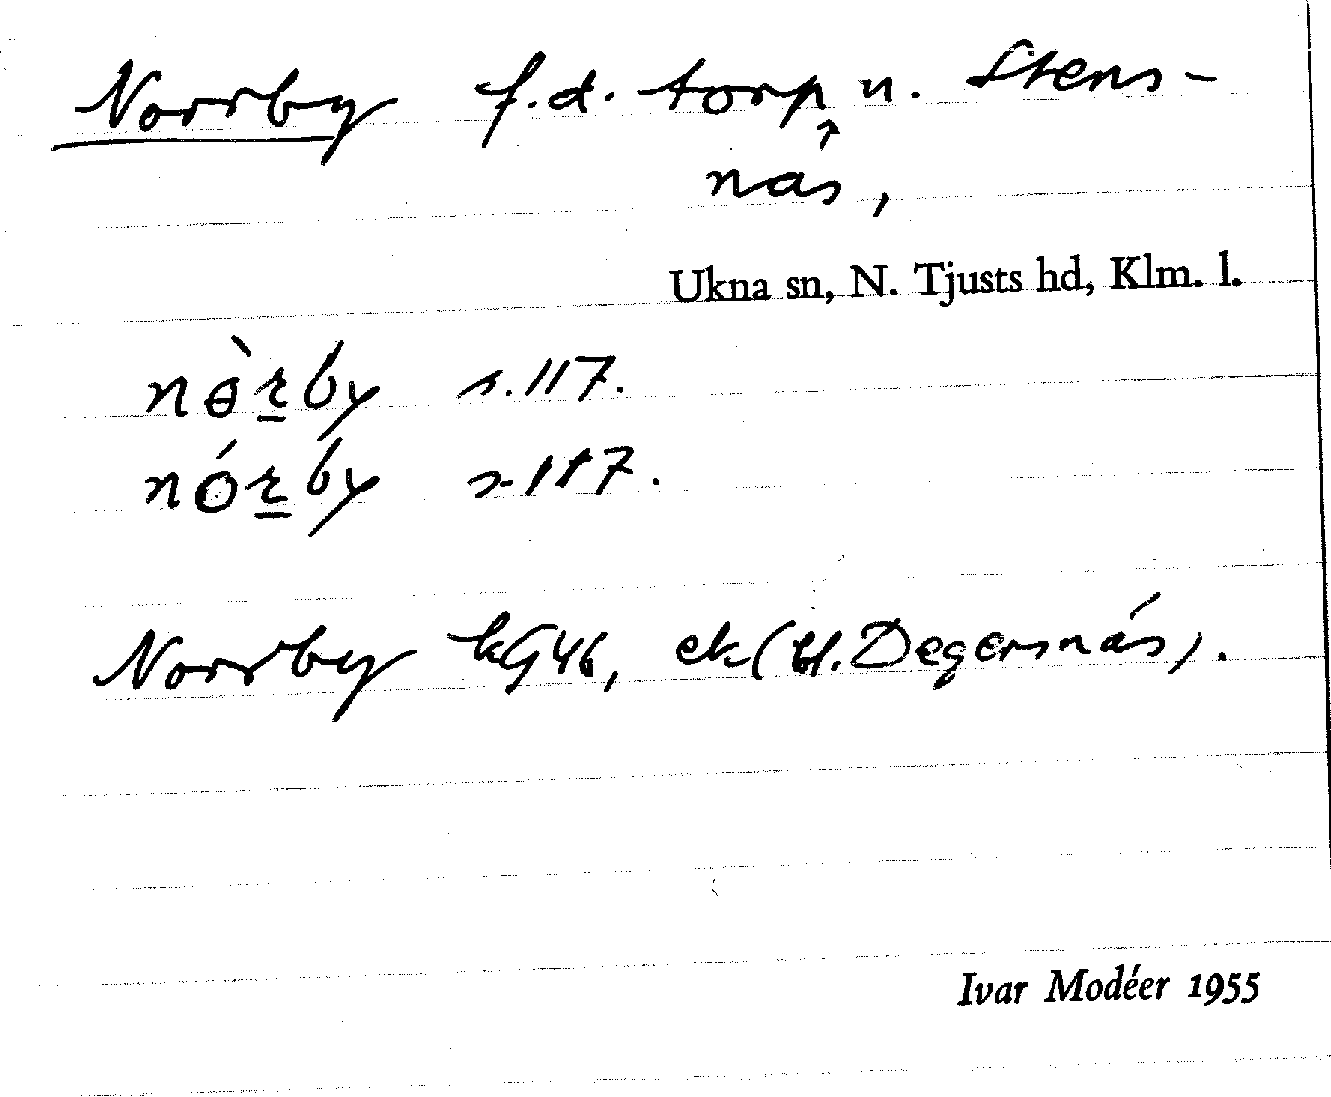 Norrby f.d. torp u. Stens-
näs,
Ukna sn, N. Tjusts hd, Klm. l.
nɵ̀ꞅby s.117.
nóꞅby s.117.
Norrby kG46, ek (t. Degersnäs).
Ivar Modéer 1955